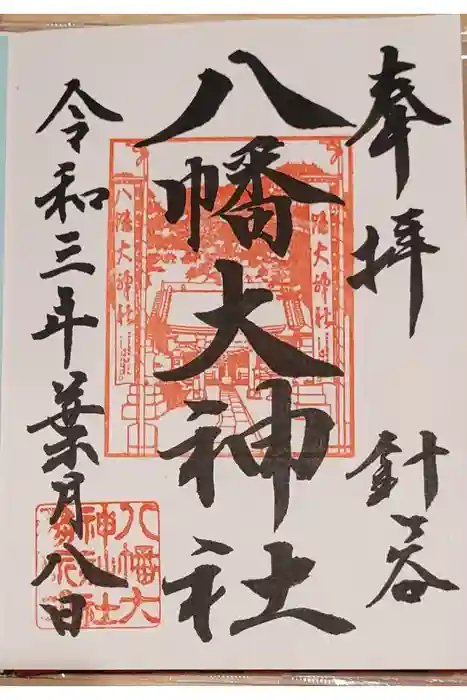 奉拝
針ヶ谷
八幡大神社
八幡大神社
八幡大神社
令和三年葉月八日
八幡大
神社